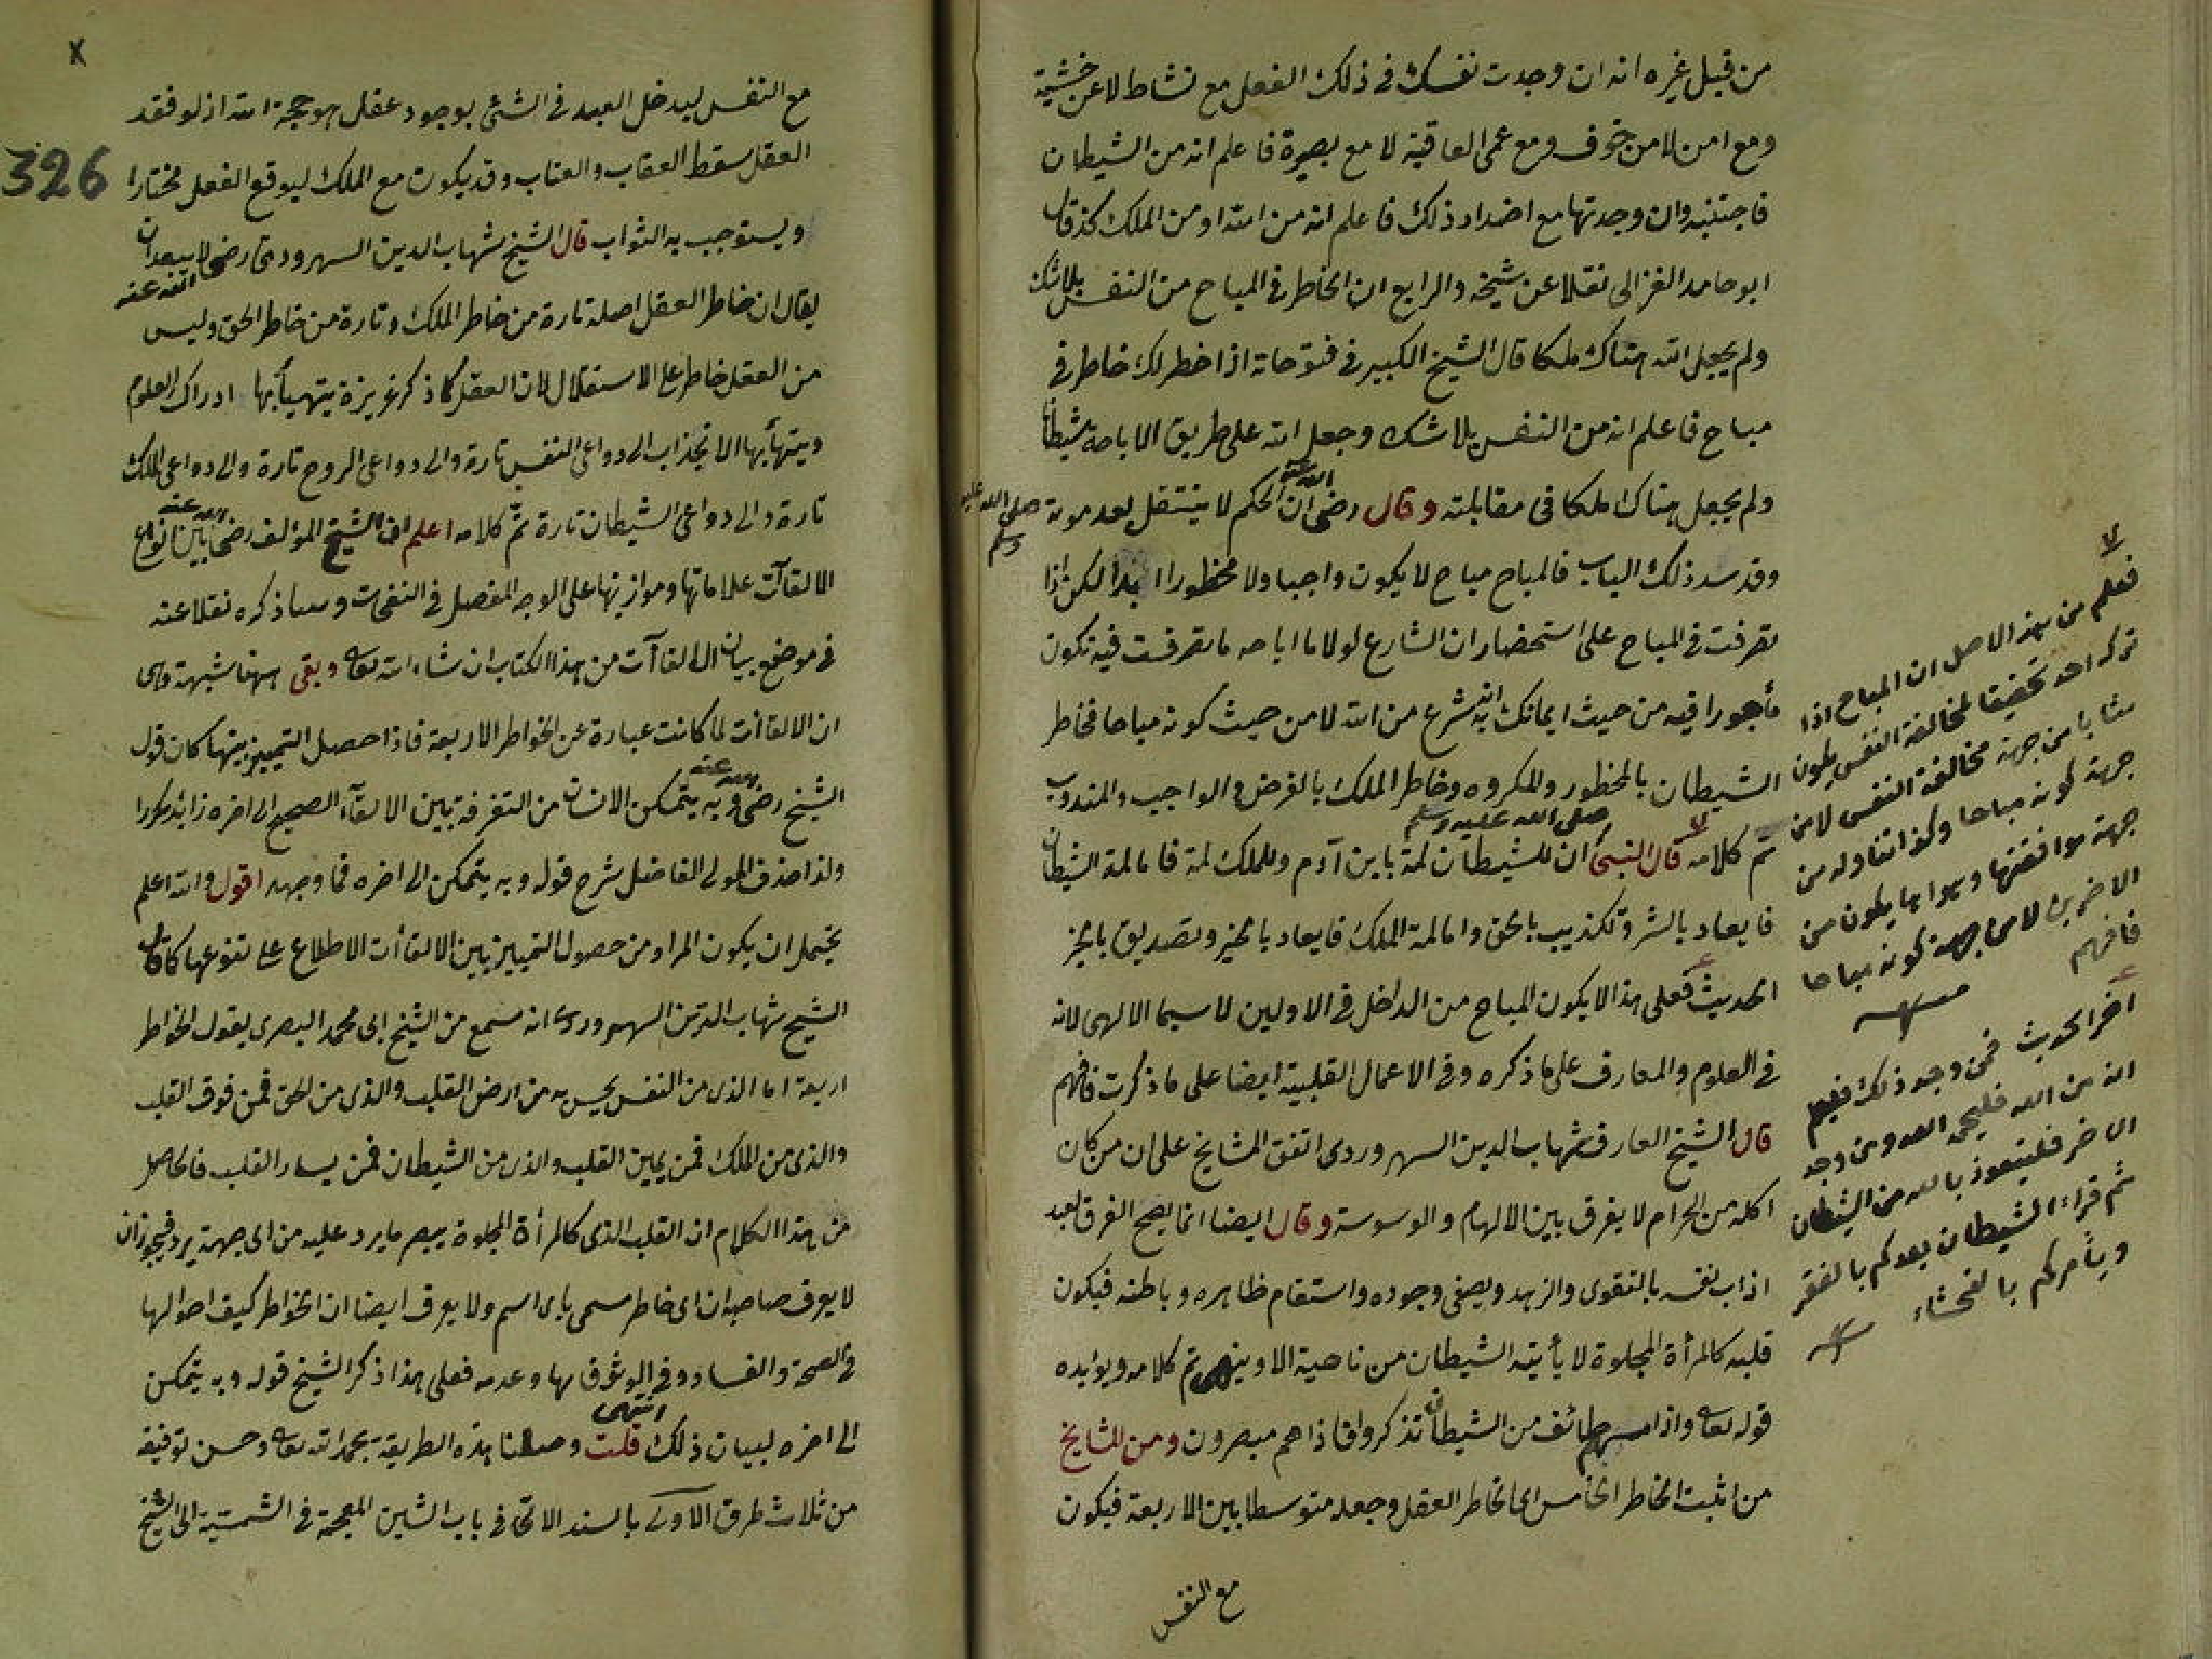 من قبل غيره انه ان وجدت نفسك فى ذلك الفعل مع نشاط لا عن خشية
ومع امن لا من خوف ومع عمى العاقبة لا مع بصيرة فاعلم انه من الشيطان
فاجتنبه وان وجدتها مع اضداد ذلك فاعلم انه من الله او من الملك كذا قال
ابو حامد الغزالى نقلا عن شيخه والرابع ان الخاطر فى المباح من النفس بلا شك
ولم يجعل الله هناك ملكا قال الشيخ الكبير فى فتوحاته اذا خطر لك خاطر فى
مباح فاعلم انه من النفس بلا شك وجعل الله على طريق الاباحة شيطانا
ولم يجعل هناك ملكا فى مقابلته وقال رضى الله عنه ان الحكم لا ينتقل بعد موته صلى الله عليه وسلم
وقد سد ذلك الباب فالمباح مباح لا يكون واجبا ولا محظورا ابدا لكن اذا
تصرفت فى المباح على استحضار ان الشارع لولا ما اباحه ما تصرفت فيه تكون
مأجورا فيه من حيث ايمانك به انه شرع من الله لا من حيث كونه مباحا فخاطر
الشيطان بالمحظور والمكروه وخاطر الملك بالفرض والواجب والمندوب
تم كلامه قال النبى صلى الله عليه وسلم ان للشيطان لمة بابن آدم وللملك لمة فاما لمة الشيطان
فايعاد بالشر وتكذيب بالحق واما لمة الملك فايعاد بالخير وتصديق بالخير
الحديث فعلى هذا لا يكون المباح من الداخل فى الاولين لا سيما الالهى لانه
فى العلوم والمعارف على ما ذكره وفى الاعمال القلبية ايضا على ما ذكرت فافهم
قال الشيخ العارف شهاب الدين السهروردى اتفق المشايخ على ان من كان
اكله من الحرام لا يفرق بين الالهام والوسوسة وقال ايضا انما يصح الفرق لعبد
اذاب نفسه بالتقوى والزهد ويصفى وجوده واستقام ظاهره وباطنه فيكون
قلبه كالمرأة المجلوة لا يأتيه الشيطان من ناحية الا وينهى تم كلامه ويؤيده
قوله تعالى واذا مسهم طائف من الشيطان تذكروا فاذا هم مبصرون ومن المشايخ
من اثبت الخاطر الخامس اى الخاطر العقل وجعله متوسطا بين الاربعة فيكون
مع النفس
فعلم من هذا الاصل ان المباح اذا
تركه احد تحقيقا لمخالفة النفس يكون
مثابا من جهة مخالفة النفس لا من
جهة كونه مباحا وكذا تناوله من
جهة موافقتها وهواها يكون من
الاخر لا من جهة كونه مباحا
فافهم
آخر الحديث فمن وجد ذلك فليعلم
انه من الله فليحمد الله ومن وجد
الاخر فليتعوذ بالله من الشيطان
ثم قراء الشيطان يعدكم بالفقر
ويأمركم بالفحشاء
326
مع النفس ليدخل العبد فى الشئ بوجود عقل هو حجة الله اذ لو فقد
العقل سقط العقاب والعتاب وقد يكون مع الملك ليوقع الفعل مختارا
ويستوجب به الثواب قال الشيخ شهاب الدين السهروردى رضى الله عنه لا يبعد ان
يقال ان خاطر العقل اصله تارة من خاطر الملك وتارة من خاطر الحق وليس
من العقل خاطر على الاستقلال لان العقل كما ذكر غريزة يتهيأ بها ادراك العلوم
ويتهيأ بها الانجذاب الى دواعى النفس تارة والى دواعى الروح تارة والى دواعى الملك
تارة والى دواعى الشيطان تارة تم كلامه اعلم ان الشيخ المؤلف رضى الله عنه بين انواع
الالقاآت علاماتها وموازينها على الوجه المفصل فى النفحات وساذكره نقلا عنه
فى موضع بيان الالقاآت من هذا الكتاب ان شاء الله تعالى وبقى ههنا شبهة وهى
ان الالقاآت لما كانت عبارة عن الخواطر الاربعة فاذا حصل التمييز بينها كان قول
الشيخ رضى الله عنه وبه يتمكن الانسان من التفرقة بين الالقآء الصحيح الى اخره زايد مكررا
ولذا حذف المولى الفاضل شرح قوله وبه يتمكن الى اخره فما وجهه اقول والله اعلم
يحتمل ان يكون المراد من حصول التمييز بين الالقاآت الاطلاع على تنوعها كما قال
الشيخ شهاب الدين السهروردى انه سمع من الشيخ ابى محمد البصرى يقول الخواطر
اربعة اما الذى من النفس يحس به من ارض القلب والذى من الحق فمن فوق القلب
والذى من الملك فمن يمين القلب والذى من الشيطان فمن يسار القلب فالحاصل
من هذا الكلام ان القلب الذى كالمرأة المجلوة يبصر ما يرد عليه من اى جهة يرد فيجوز ان
لا يعرف صاحبه ان اى خاطر مسمى باى اسم ولا يعرف ايضا ان الخواطر كيف احوالها
فى الصحة والفساد وفى الوثوق بها وعدمه فعلى هذا ذكر الشيخ قوله وبه يتمكن
الى اخره لبيان ذلك انتهى قلت وصلنا هذه الطريقة بحمد الله تعالى وحسن توفيقه
من ثلاث طرق الاولى بالسند الاتى فى باب الشين المعجمة فى الشمسية الى الشيخ